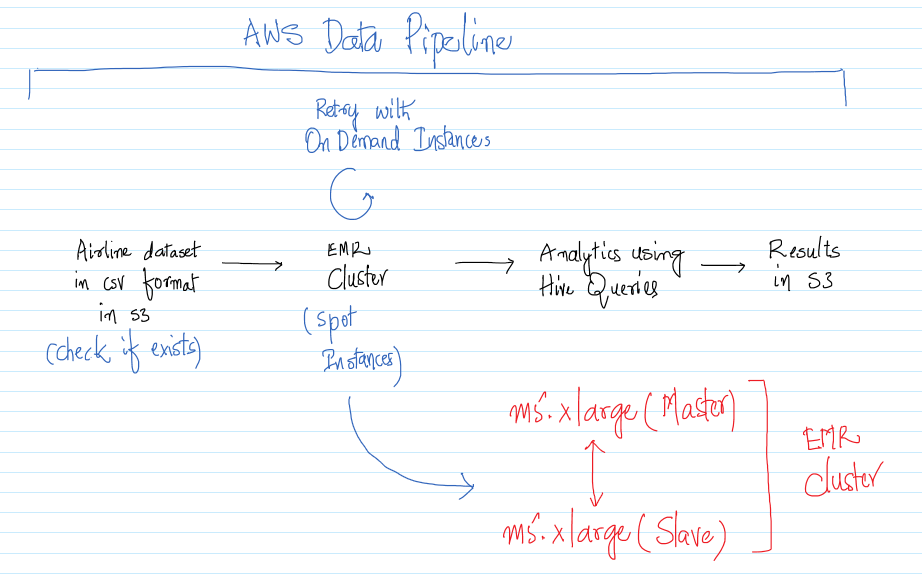 AWS Data Pipeline
Retry with
On Demand Instances
Airline dataset
in csv format
in S3
(check if exists)
EMR
Cluster
(Spot
Instances)
Analytics using
Hive Queries
Results
in S3
m5.xlarge (Master)
m5.xlarge (Slave)
EMR
Cluster